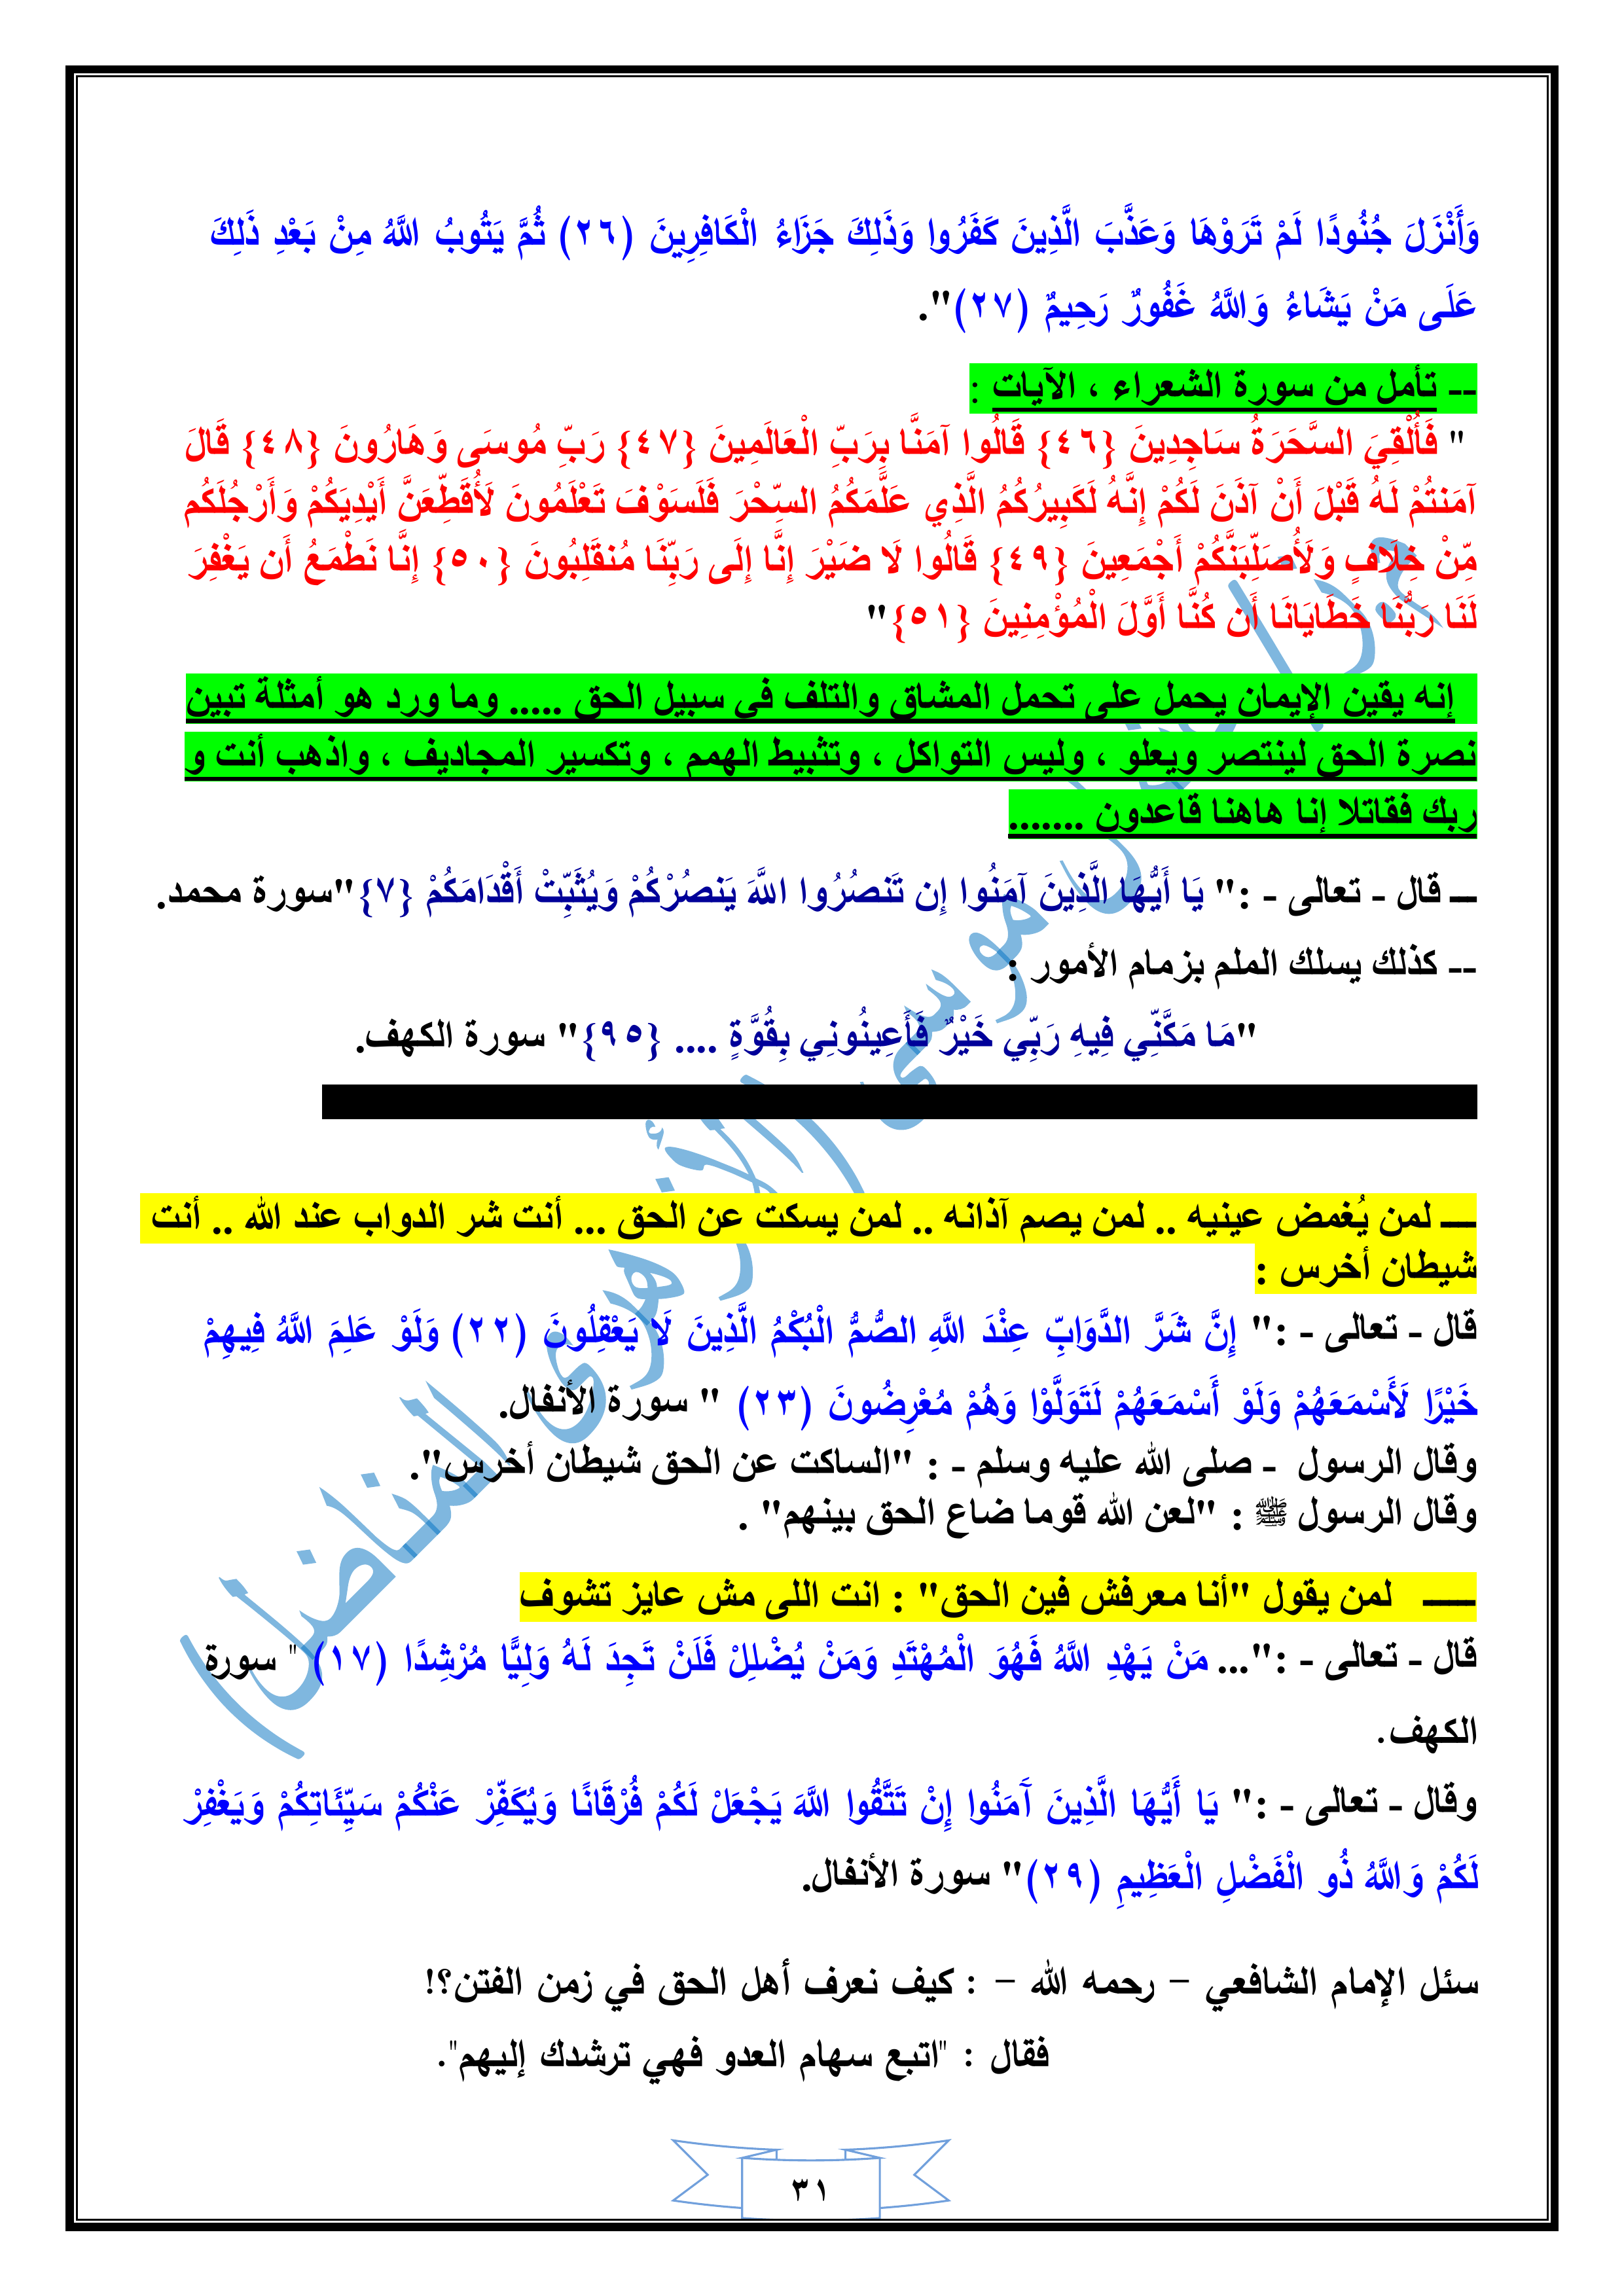 وَأَنْزَلَ جُنُودًا لَمْ تَرَوْهَا وَعَذَّبَ الَّذِينَ كَفَرُوا وَذَلِكَ جَزَاءُ الْكَافِرِينَ (٢٦) ثُمَّ يَتُوبُ اللَّهُ مِنْ بَعْدِ ذَلِكَ
عَلَى مَنْ يَشَاءُ وَاللَّهُ غَفُورٌ رَحِيمٌ (٢٧)".
-- تأمل من سورة الشعراء ، الآيات :
" فَأُلْقِيَ السَّحَرَةُ سَاجِدِينَ {٤٦} قَالُوا آمَنَّا بِرَبِّ الْعَالَمِينَ {٤٧} رَبِّ مُوسَى وَهَارُونَ {٤٨} قَالَ
آمَنتُمْ لَهُ قَبْلَ أَنْ آذَنَ لَكُمْ إِنَّهُ لَكَبِيرُكُمُ الَّذِي عَلَّمَكُمُ السِّحْرَ فَلَسَوْفَ تَعْلَمُونَ لَأُقَطِّعَنَّ أَيْدِيَكُمْ وَأَرْجُلَكُم
مِّنْ خِلَافٍ وَلَأُصَلِّبَنَّكُمْ أَجْمَعِينَ {٤٩} قَالُوا لَا ضَيْرَ إِنَّا إِلَى رَبِّنَا مُنقَلِبُونَ {٥٠} إِنَّا نَطْمَعُ أَن يَغْفِرَ
لَنَا رَبُّنَا خَطَايَانَا أَن كُنَّا أَوَّلَ الْمُؤْمِنِينَ {٥١}"
إنه يقين الإيمان يحمل على تحمل المشاق والتلف في سبيل الحق ..... وما ورد هو أمثلة تبين
نصرة الحق لينتصر ويعلو ، وليس التواكل ، وتثبيط الهمم ، وتكسير المجاديف ، واذهب أنت و
ربك فقاتلا إنا هاهنا قاعدون .......
ـــ قال - تعالى - :" يَا أَيُّهَا الَّذِينَ آمَنُوا إِن تَنصُرُوا اللَّهَ يَنصُرْكُمْ وَيُثَبِّتْ أَقْدَامَكُمْ {٧}"سورة محمد.
-- كذلك يسلك الملم بزمام الأمور :
"مَا مَكَّنِّي فِيهِ رَبِّي خَيْرٌ فَأَعِينُونِي بِقُوَّةٍ .... {٩٥}" سورة الكهف.
ـــ لمن يُغمض عينيه .. لمن يصم آذانه .. لمن يسكت عن الحق ... أنت شر الدواب عند الله .. أنت
شيطان أخرس :
قال - تعالى - :" إِنَّ شَرَّ الدَّوَابِّ عِنْدَ اللَّهِ الصُّمُّ الْبُكْمُ الَّذِينَ لَا يَعْقِلُونَ (٢٢) وَلَوْ عَلِمَ اللَّهُ فِيهِمْ
خَيْرًا لَأَسْمَعَهُمْ وَلَوْ أَسْمَعَهُمْ لَتَوَلَّوْا وَهُمْ مُعْرِضُونَ (٢٣) " سورة الأنفال.
وقال الرسول - صلى الله عليه وسلم - : "الساكت عن الحق شيطان أخرس".
وقال الرسول ﷺ : "لعن الله قوما ضاع الحق بينهم" .
ـــ لمن يقول "أنا معرفش فين الحق" : انت اللى مش عايز تشوف
قال - تعالى - :"... مَنْ يَهْدِ اللَّهُ فَهُوَ الْمُهْتَدِ وَمَنْ يُضْلِلْ فَلَنْ تَجِدَ لَهُ وَلِيًّا مُرْشِدًا (١٧) " سورة
الكهف.
وقال - تعالى - :" يَا أَيُّهَا الَّذِينَ آَمَنُوا إِنْ تَتَّقُوا اللَّهَ يَجْعَلْ لَكُمْ فُرْقَانًا وَيُكَفِّرْ عَنْكُمْ سَيِّئَاتِكُمْ وَيَغْفِرْ
لَكُمْ وَاللَّهُ ذُو الْفَضْلِ الْعَظِيمِ (٢٩)" سورة الأنفال.
سئل الإمام الشافعي – رحمه الله – : كيف نعرف أهل الحق في زمن الفتن؟!
فقال : "اتبع سهام العدو فهي ترشدك إليهم".
٣١